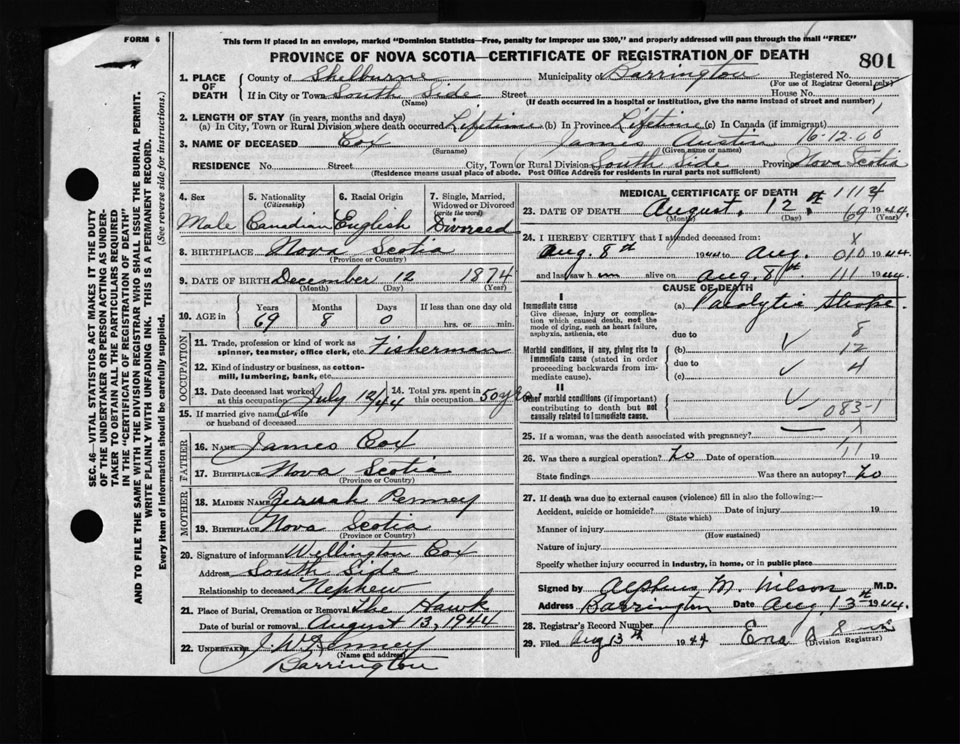 FORM 6
This form if placed in an envelope, marked "Dominion Statistics—Free, penalty for improper use $300," and properly addressed will pass through the mail "FREE"
PROVINCE OF NOVA SCOTIA—CERTIFICATE OF REGISTRATION OF DEATH
801
1. PLACE OF DEATH
County of Shelburne Municipality of Barrington Registered No.
(For use of Registrar General only)
If in City or Town South Side Street House No.
(Name) (If death occurred in a hospital or institution, give the name instead of street and number)
2. LENGTH OF STAY (in years, months and days)
(a) In City, Town or Rural Division where death occurred Lifetime (b) In Province Lifetime (c) In Canada (if immigrant)
16-12-00
3. NAME OF DECEASED Cox James Austin
(Surname) (Given name or names)
RESIDENCE No. Street City, Town or Rural Division South Side Province Nova Scotia
(Residence means usual place of abode. Post Office Address for residents in rural parts not sufficient)
SEC. 46—VITAL STATISTICS ACT MAKES IT THE DUTY
OF THE UNDERTAKER OR PERSON ACTING AS UNDER-
TAKER TO OBTAIN ALL THE PARTICULARS REQUIRED
IN THE "CERTIFICATE OF REGISTRATION OF DEATH"
AND TO FILE THE SAME WITH THE DIVISION REGISTRAR WHO SHALL ISSUE THE BURIAL PERMIT.
WRITE PLAINLY WITH UNFADING INK. THIS IS A PERMANENT RECORD.
Every item of information should be carefully supplied. (See reverse side for instructions.)
4. Sex 5. Nationality (Citizenship) 6. Racial Origin 7. Single, Married, Widowed or Divorced (write the word)
Male Canadian English Divorced
8. BIRTHPLACE Nova Scotia
(Province or Country)
9. DATE OF BIRTH December 12 1874
(Month) (Day) (Year)
10. AGE in Years Months Days If less than one day old
69 8 0 hrs. or min.
OCCUPATION
11. Trade, profession or kind of work as spinner, teamster, office clerk, etc. Fisherman
12. Kind of industry or business, as cotton-mill, lumbering, bank, etc.
13. Date deceased last worked at this occupation July 12/44 14. Total yrs. spent in this occupation 50 yrs
15. If married give name of wife or husband of deceased
FATHER
16. NAME James Cox
17. BIRTHPLACE Nova Scotia
(Province or Country)
MOTHER
18. MAIDEN NAME Zeruah Penney
19. BIRTHPLACE Nova Scotia
(Province or Country)
20. Signature of informant Wellington Cox
Address South Side
Relationship to deceased Nephew
21. Place of Burial, Cremation or Removal The Hawk
Date of burial or removal August 13, 1944
22. UNDERTAKER
(Name and address)
Barrington
MEDICAL CERTIFICATE OF DEATH
1114
23. DATE OF DEATH August 12th 1944
(Month) (Day)
69
24. I HEREBY CERTIFY that I attended deceased from:
Aug. 8th 1944 to Aug. 1944
X
010
and last saw him alive on Aug. 8th 1944
111
CAUSE OF DEATH
I
Immediate cause
Give disease, injury or complication which caused death, not the mode of dying, such as heart failure, asphyxia, asthenia, etc
(a) Paralytic Stroke
due to
8
Morbid conditions, if any, giving rise to immediate cause (stated in order proceeding backwards from immediate cause).
(b)
12
due to
4
(c)
II
Other morbid conditions (if important) contributing to death but not causally related to immediate cause.
083-1
25. If a woman, was the death associated with pregnancy?
X
26. Was there a surgical operation? No Date of operation 19
11
State findings Was there an autopsy? No
27. If death was due to external causes (violence) fill in also the following:—
Accident, suicide or homicide? Date of injury 19
(State which)
Manner of injury
(How sustained)
Nature of injury
Specify whether injury occurred in industry, in home, or in public place
Signed by Alphus M. Wilson M.D.
Address Barrington Date Aug, 13th 1944.
28. Registrar's Record Number
29. Filed Aug 13th 1944 Ena
(Division Registrar)